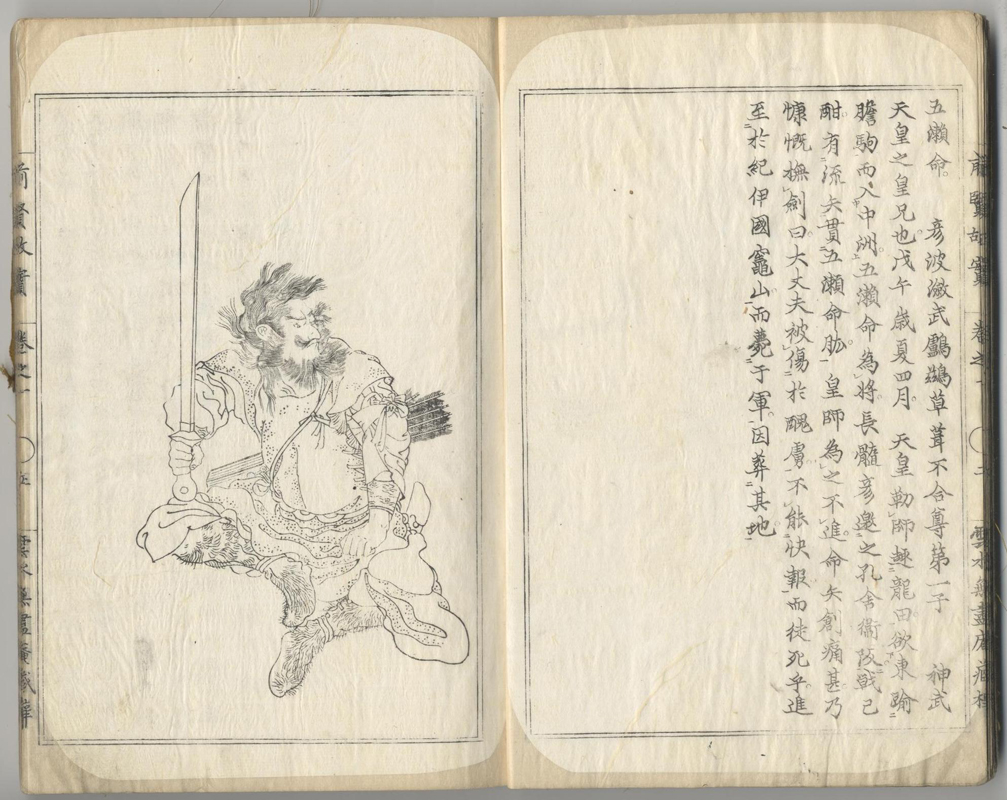 五瀬命。　彦波瀲武鸕鷀草葺不合尊第一子　神武
天皇之皇兄也。戊午歳夏四月。　天皇勒師趣龍田。欲東踰
膽駒而入中洲。五瀬命為將。長髓彦邀之孔舎衞阪。戰已
酣。有流矢貫五瀬命肱。　皇師為之不進。命矢創痛甚。乃
慷慨撫劍曰。大丈夫被傷於醜虜。不能快報而徒死乎。進
至於紀伊國竈山而薨于軍。因葬其地。
前賢故實
卷之一